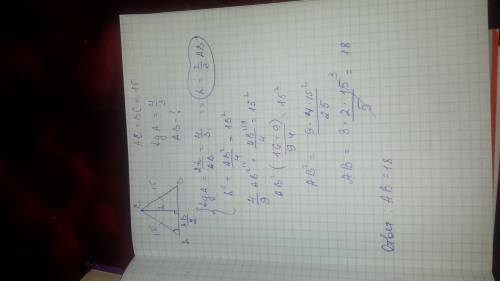 AC = BC = 15
tg A = 4/3
AB - ?
C
15
15
h
A
B
AB/2
{ tg A = 2h/AB = 4/3 => (h = 2/3 AB)
h² + AB²/4 = 15²
4/9 AB² + AB²/4 = 15²
AB² (16+9 / 9·4) = 15²
AB² = 9·4·15² / 25
AB = 3·2·15³ / 5 = 18
Ответ AB = 18